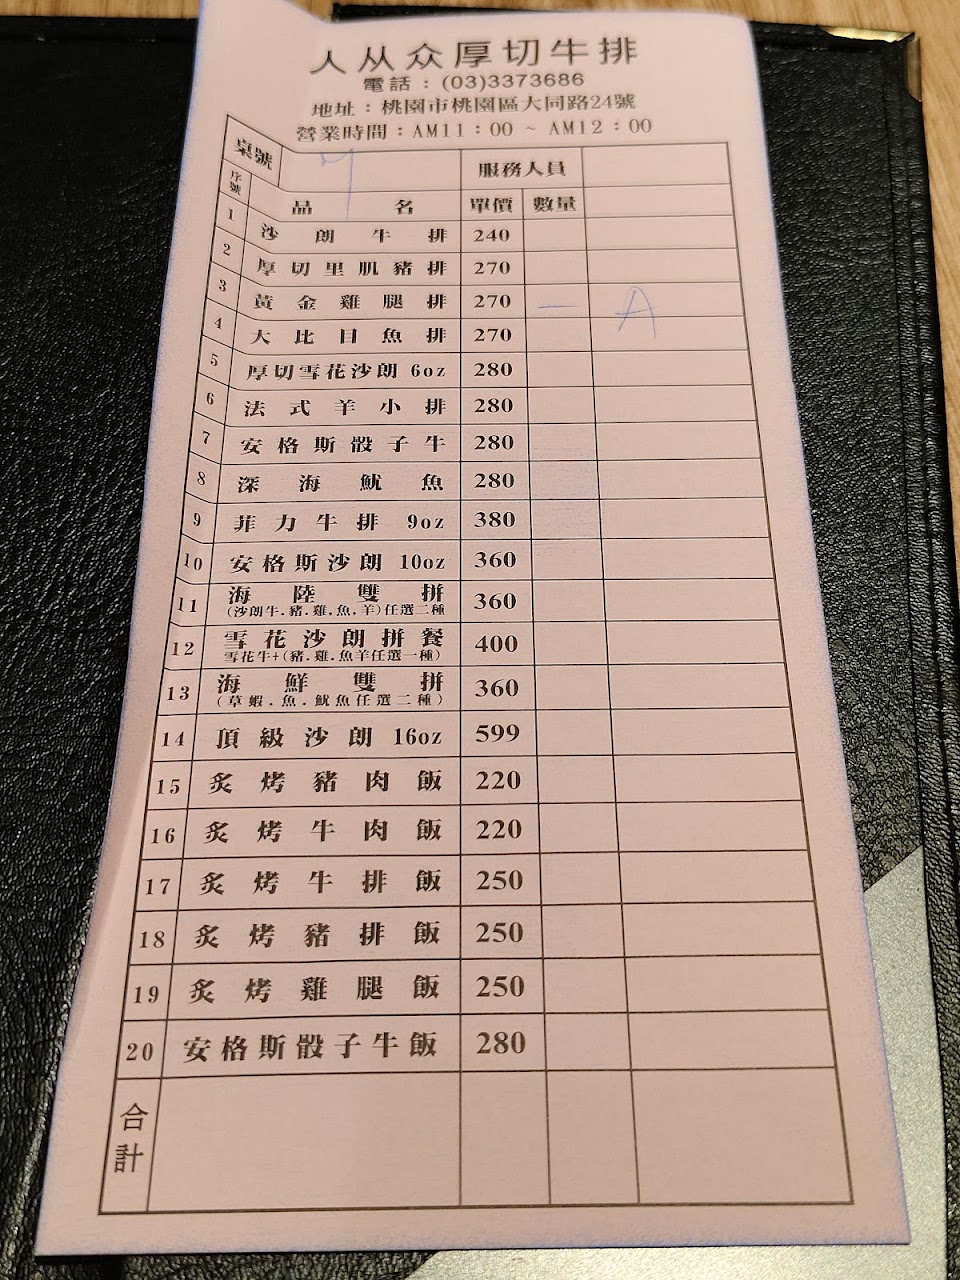 人从众厚切牛排
電話：(03)3373686
地址：桃園市桃園區大同路24號
營業時間：AM11：00 ~ AM12：00
桌號 服務人員
序號 品名 單價 數量
1 沙朗牛排 240
2 厚切里肌豬排 270
3 黃金雞腿排 270 一 A
4 大比目魚排 270
5 厚切雪花沙朗 6oz 280
6 法式羊小排 280
7 安格斯骰子牛 280
8 深海魷魚 280
9 菲力牛排 9oz 380
10 安格斯沙朗 10oz 360
11 海陸雙拼 360
(沙朗牛.豬.雞,魚,羊)任選二種
12 雪花沙朗拼餐 400
雪花牛+(豬.雞.魚羊任選一種)
13 海鮮雙拼 360
(草蝦.魚.魷魚任選二種)
14 頂級沙朗 16oz 599
15 炙烤豬肉飯 220
16 炙烤牛肉飯 220
17 炙烤牛排飯 250
18 炙烤豬排飯 250
19 炙烤雞腿飯 250
20 安格斯骰子牛飯 280
合計